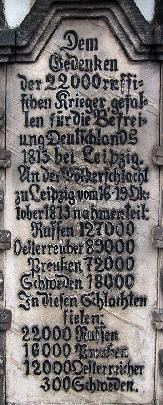 Dem
Gedenken
der 22000 russi-
schen Krieger gefal-
len für die Befrei-
ung Deutschlands
1813 bei Leipzig.
An der Völkerschlacht
zu Leipzig vom 16-19 Ok-
tober 1813 nahmen teil:
Russen 127000
Oesterreicher 89000
Preußen 72000
Schweden 18000
In diesen Schlachten
fielen:
22000 Russen
16000 Preußen
12000 Oesterreicher
300 Schweden.